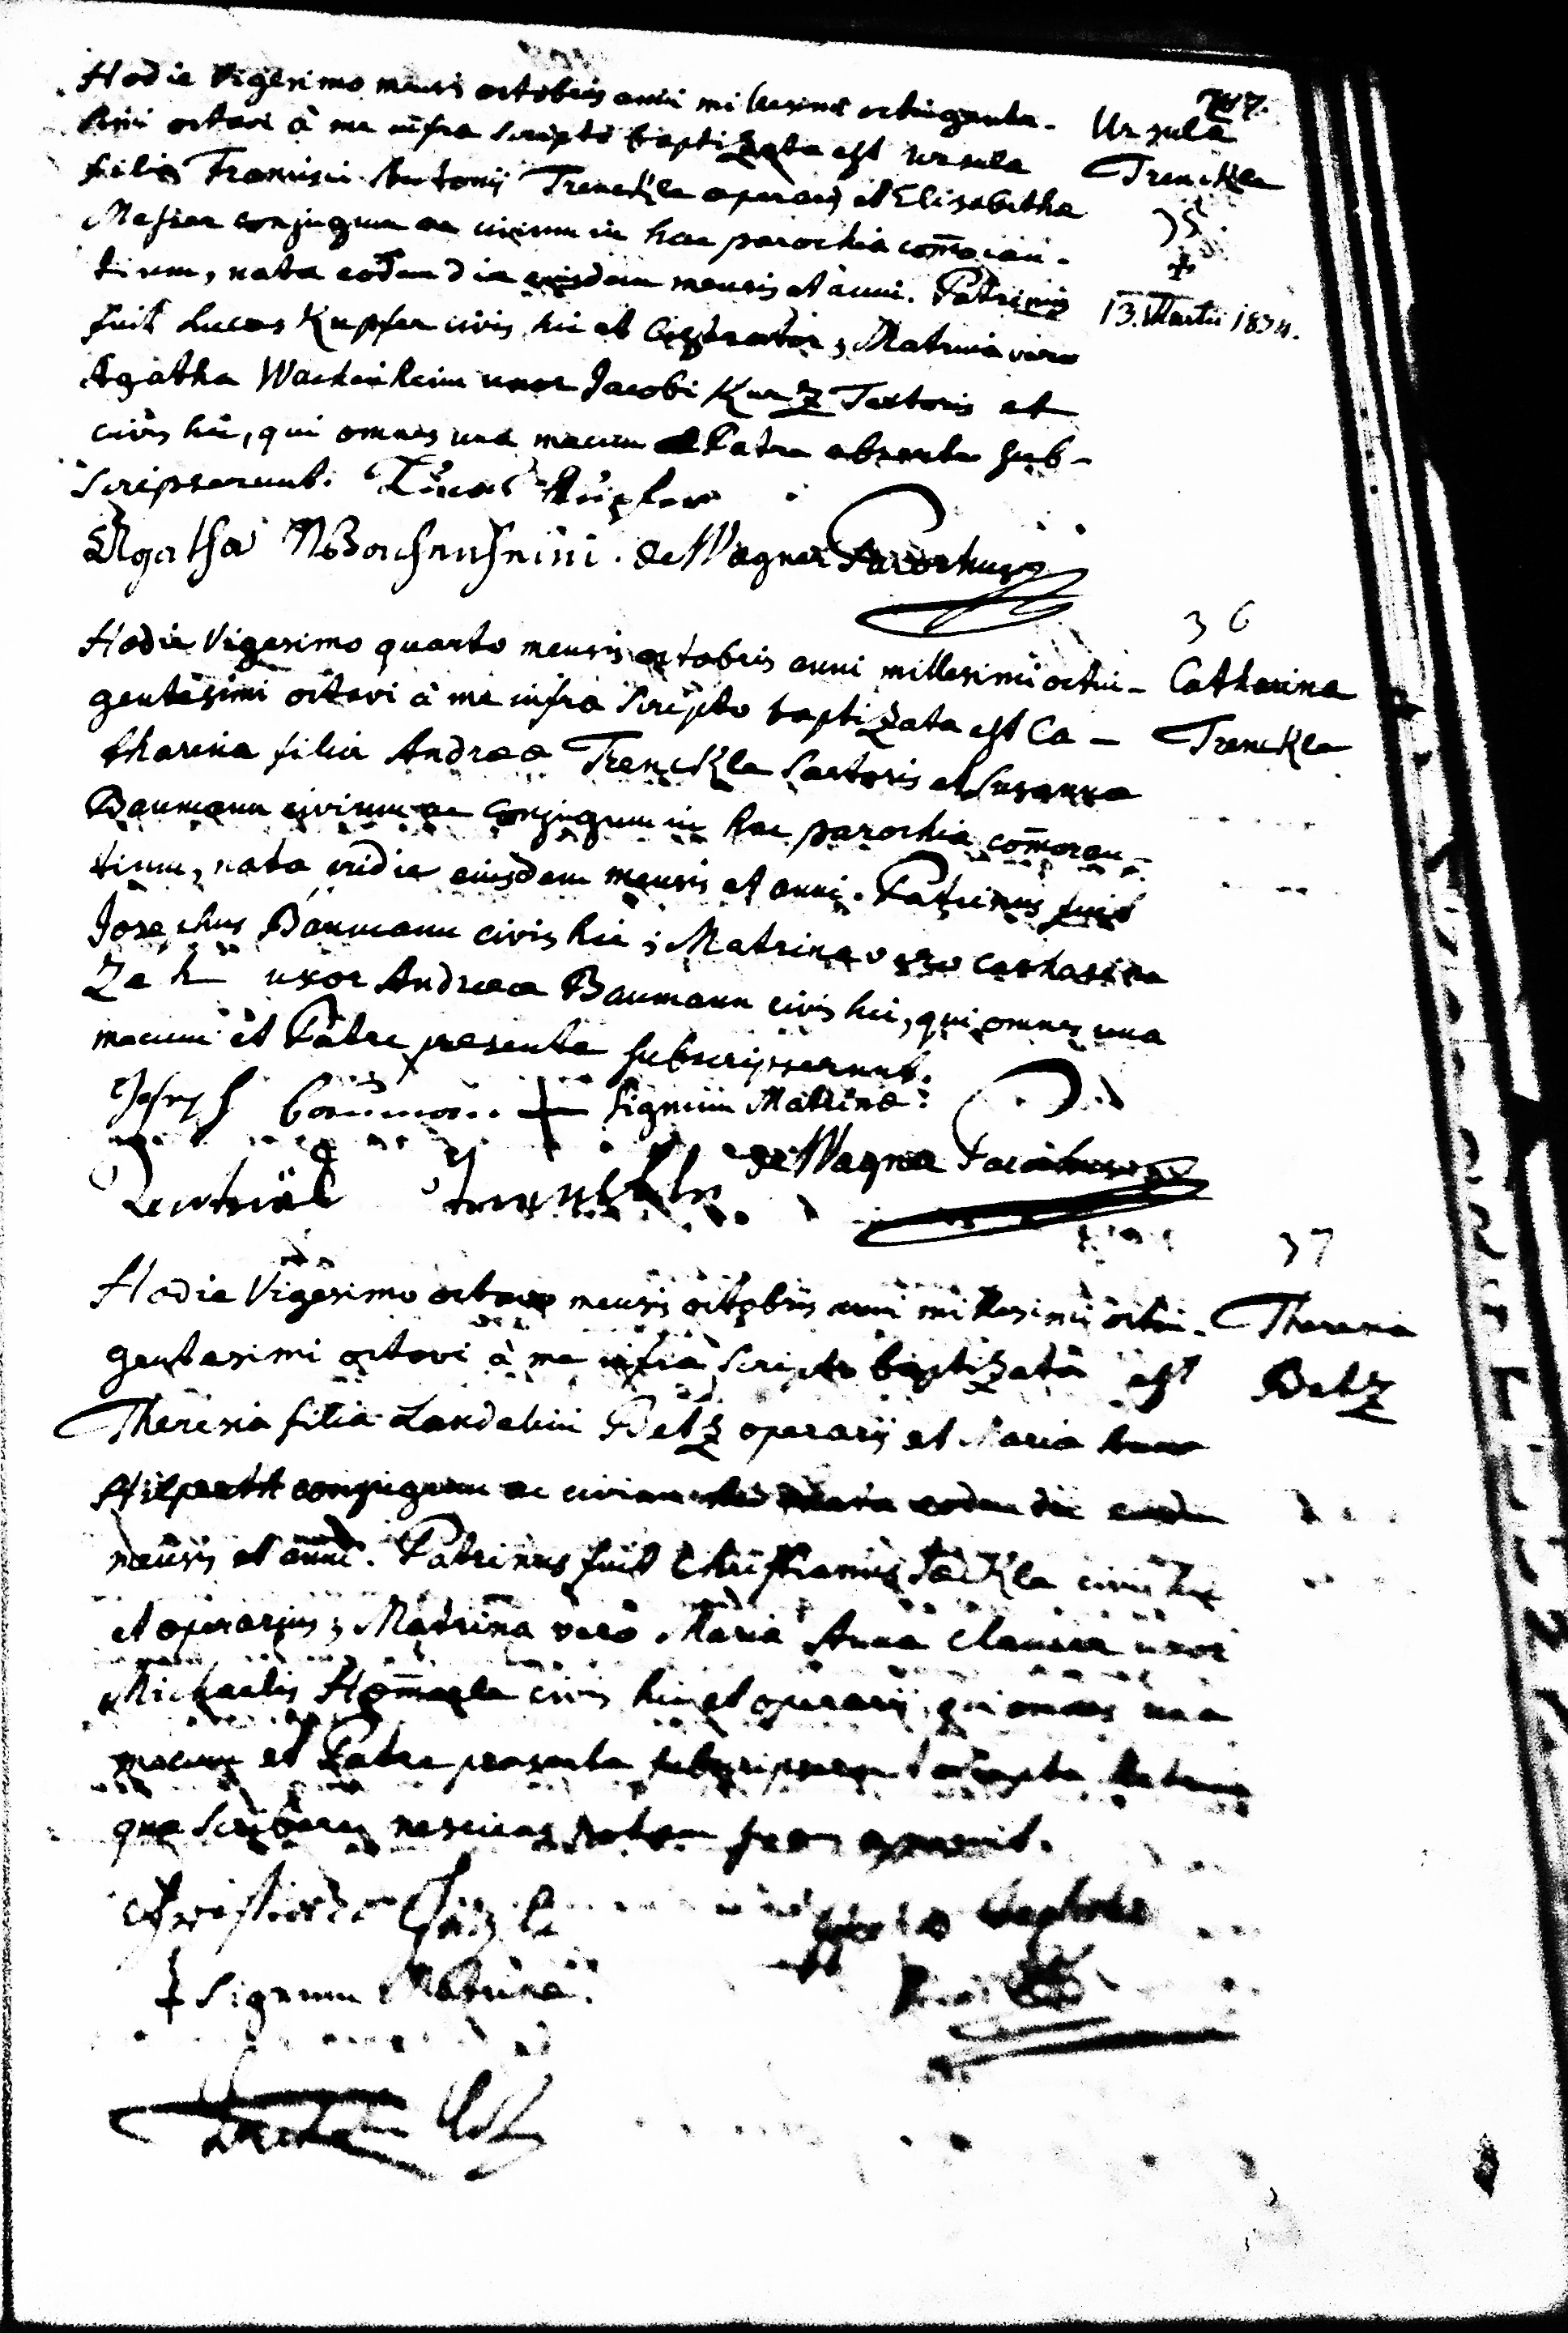 Hodie Vigesimo mensis octobris anni millesimi octingente-
simi octavi à me infra scripto baptizata est Ursula
filia Francisci Antonij Trenckle operarij et Elisabetha
Messer conjugum ac civium in hac parochia com̄oran-
tium, nata eodem die eiusdem mensis et anni. Patrinus
fuit Lucas Kupfer civis hic et ; Matrina vero
Agatha Wachenheim uxor Jacobi Kurz Textoris et
civis hic, qui omnes una mecum Patre absente sub-
scripserunt. Lucas Kupfer
Agatha Wachenheim. de Wagner Parochus
Ursula
Trenckle
35
†
13. Martii 1834.
36
Hodie Vigesimo quarto mensis octobris anni millesimi octin-
gentesimi octavi à me infra scripto baptizata est Ca-
tharina filia Andreæ Trenckle Sartoris et Susanna
Baumann civium ac conjugum in hac parochia com̄oran-
tium, nata eiusdem mensis et anni. Patrinus fuit
Josephus Baumann civis hic; Matrina vero Catharina
Zeh uxor Andreæ Baumann civis hic, qui omnes una
mecum et Patre presente subscripserunt.
Joseph baumann + Signum Matrinæ.
de Wagner Parochus
Catharina
Trenckle
37
Hodie Vigesimo octavo mensis octobris anni millesimi octin-
gentesimi octavi à me infra scripto baptizata est
Theresia filia Landelini Betz operarij et Maria
conjugum ac civium eodem die
mensis et anni. Patrinus fuit Christianus civis hic
et operarius; Matrina vero Maria Anna Clauser uxor
Michaelis civis hic et operarij, qui omnes una
mecum et Patre presente
quæ scribere nesciens apposuit.
† Signum Matrinæ.
Theresia
Betz